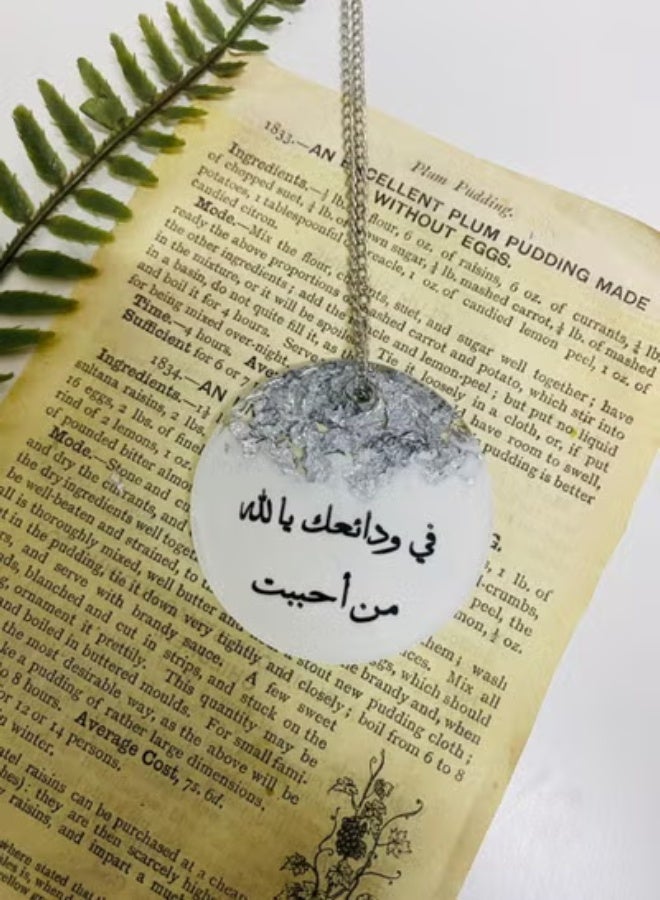 Plum Pudding.
1833.—AN EXCELLENT PLUM PUDDING MADE
WITHOUT EGGS.
Ingredients.—½ lb. flour, 6 oz. of raisins, 6 oz. of currants, ¼ lb.
of chopped suet, ¼ lb. brown sugar, ¼ lb. mashed carrot, ¼ lb. of mashed
potatoes, 1 tablespoonful treacle, 1 oz. of candied lemon peel, 1 oz. of
candied citron.
Mode.—Mix the flour, currants, suet, and sugar well together; have
ready the above proportions mashed carrot and potato, which stir into
the other ingredients; add the treacle and lemon-peel; but put no liquid
in the mixture, or it will be spoiled. Tie it loosely in a cloth, or, if put
in a basin, do not quite fill it, as have room to swell,
and boil it for 4 hours. Serve pudding is better
for being mixed over-night.
Time.—4 hours. Ave
Sufficient for 6 or 7
1834.—AN
Ingredients.—1½
sultana raisins, 2 lbs.
16 eggs, 2 lbs. of fine
rind of 2 lemons, 1 oz. 
of pounded bitter almo
Mode.—Stone and c
and dry the currants, and
the dry ingredients well toget
be well-beaten and strained, to
all is thoroughly mixed, well butter
في ودائعك يا لله
من أحببت
G.
1 lb. of
-crumbs,
peel, the
mon, ½ oz.
hem; wash
ices. Mix all
gs, which should
he brandy and, when
stout new pudding cloth;
put in the pudding, tie it down very tightly and closely; boil from 6 to 8
and serve with brandy sauce. A few sweet
blanched and cut in strips, and stuck on the
ornament it prettily. This quantity may be
and boiled in buttered moulds. For small fami-
the most desirable way, as the above will be
ke a pudding of rather large dimensions.
8 hours. Average Cost, 7s. 6d.
or 12 or 14 persons.
winter.
raisins can be purchased at a cheap
they are then scarcely high
raisins, and impart a much
where stated that